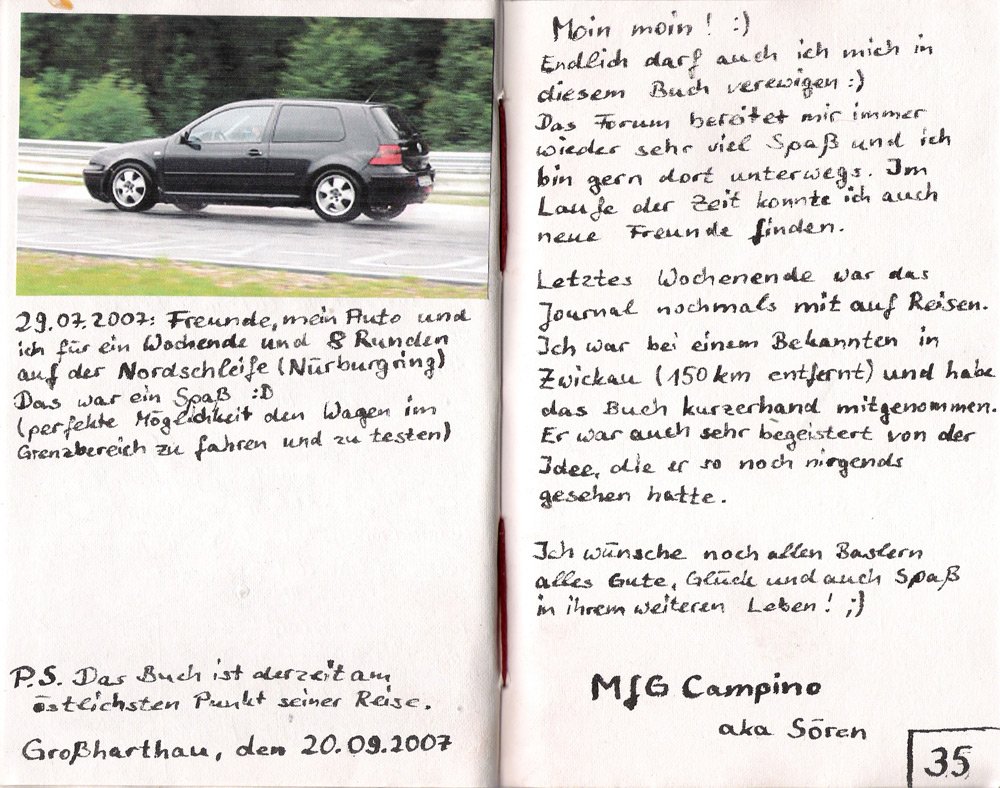 29.07.2007: Freunde, mein Auto und
ich für ein Wochende und 8 Runden
auf der Nordschleife (Nürburgring)
Das war ein Spaß :D
(perfekte Möglichkeit den Wagen im
Grenzbereich zu fahren und zu testen)
P.S. Das Buch ist derzeit am
östlichsten Punkt seiner Reise.
Großharthau, den 20.09.2007
Moin moin! :)
Endlich darf auch ich mich in
diesem Buch verewigen :)
Das Forum bereitet mir immer
wieder sehr viel Spaß und ich
bin gern dort unterwegs. Im
Laufe der Zeit konnte ich auch
neue Freunde finden.
Letztes Wochenende war das
Journal nochmals mit auf Reisen.
Ich war bei einem Bekannten in
Zwickau (150 km entfernt) und habe
das Buch kurzerhand mitgenommen.
Er war auch sehr begeistert von der
Idee, die er so noch nirgends
gesehen hatte.
Ich wünsche noch allen Bastlern
alles Gute, Glück und auch Spaß
in ihrem weiteren Leben! ;)
MfG Campino
aka Sören
35